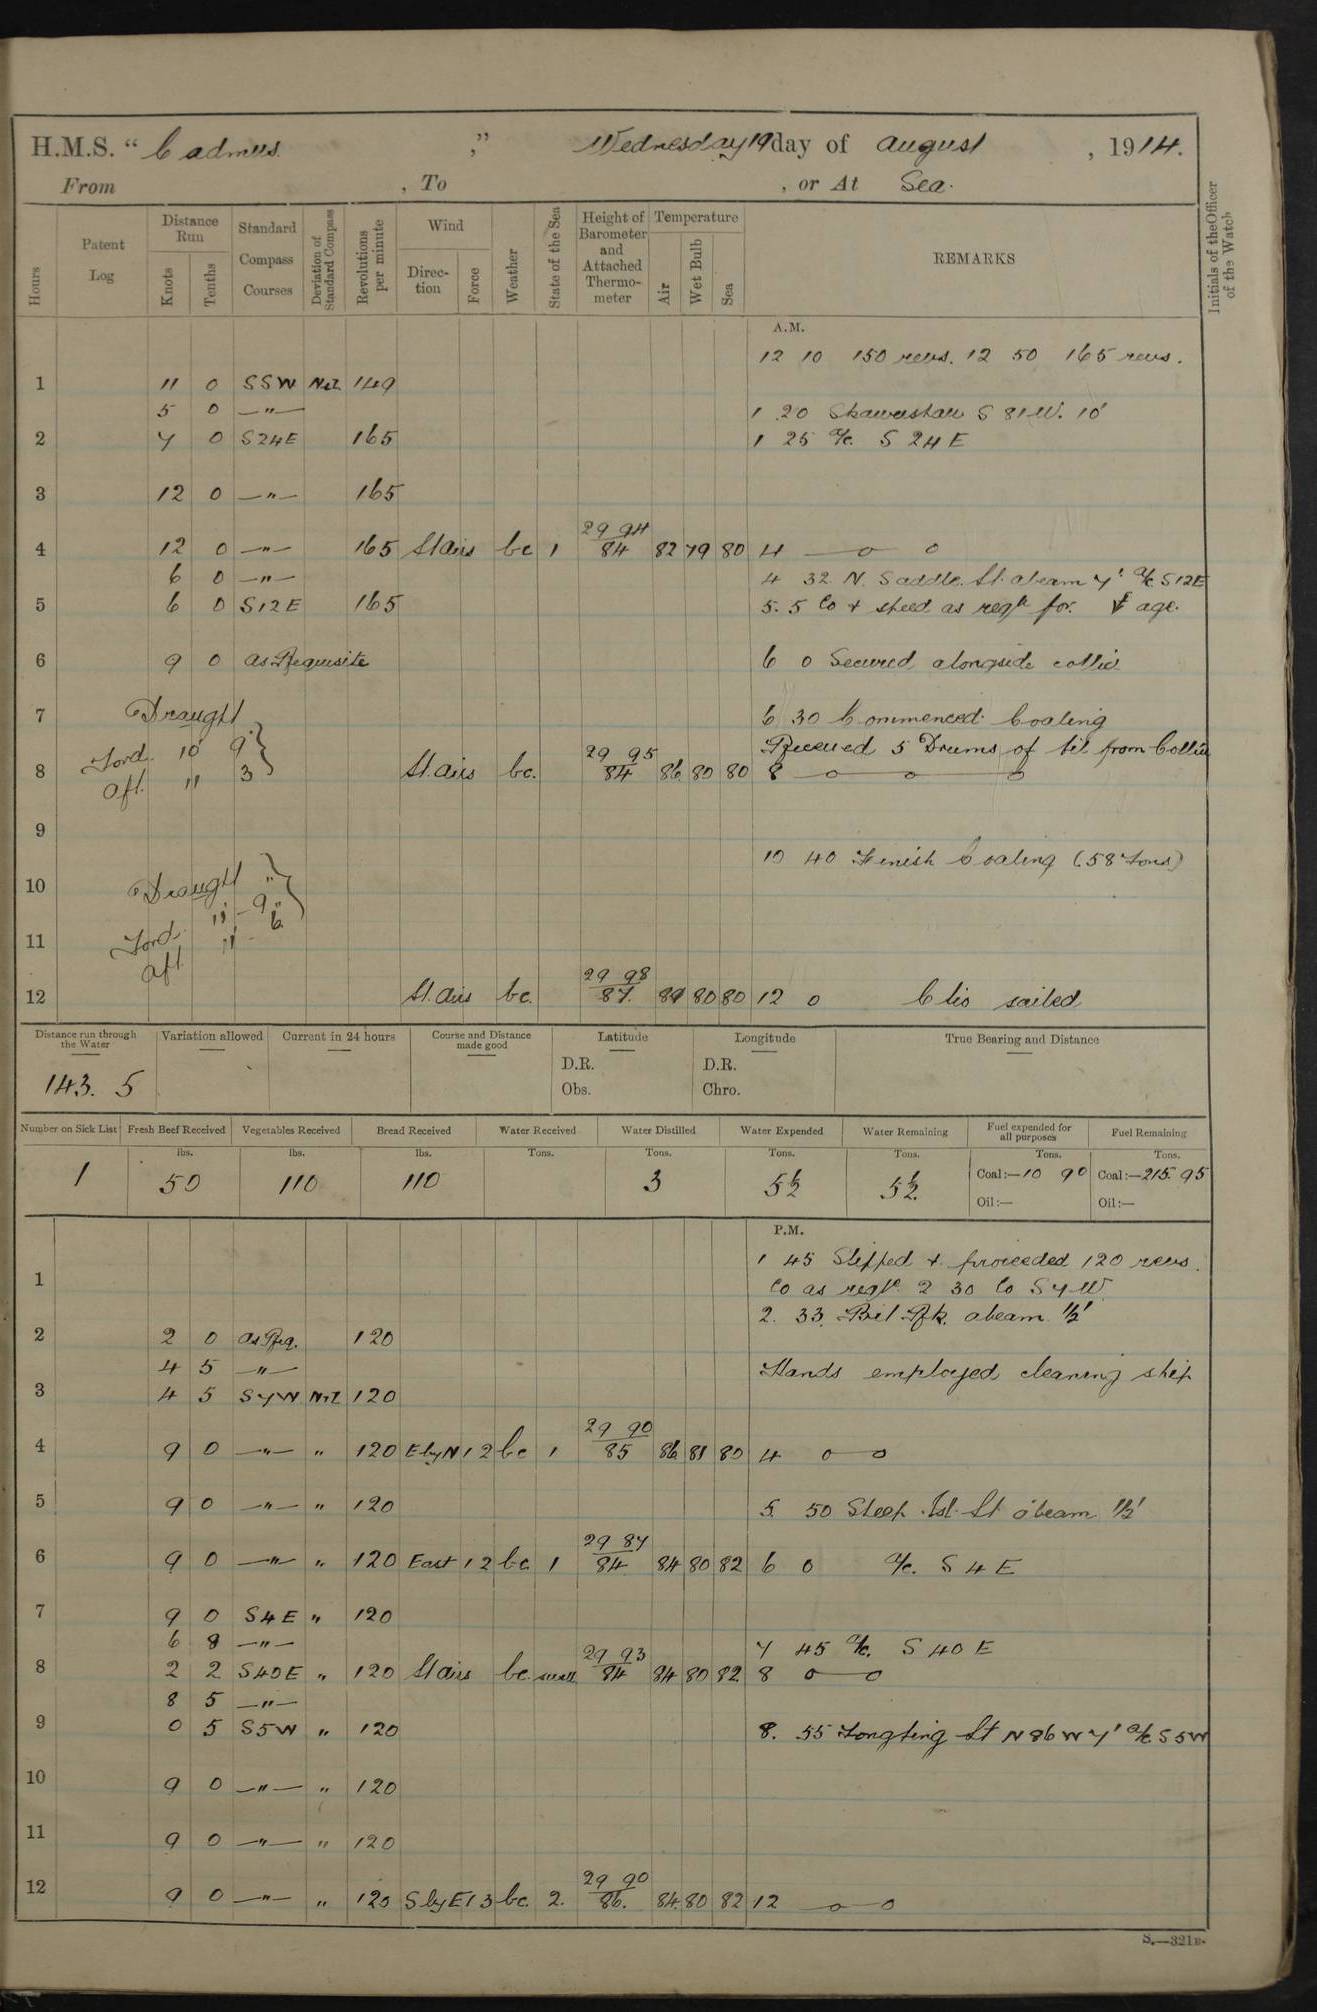 H.M.S. “ Cadmus ,” Wednesday 19 day of August , 1914.
From , To , or At Sea.
Hours Patent Log Distance Run Knots Tenths Standard Compass Courses Deviation of Standard Compass Revolutions per minute Wind Direction Force Weather State of the Sea Height of Barometer and Attached Thermometer Temperature Air Wet Bulb Sea REMARKS Initials of the Officer of the Watch
A.M.
12 10 150 revs. 12 50 165 revs.
1 11 0 SSW Nil 149
5 0 —"— 1 20 S 81 W. 10'
2 7 0 S24E 165 1 25 a/c. S 24 E
3 12 0 —"— 165
29 94
4 12 0 —"— 165 Lt airs bc 1 84 82 79 80 4 — o o
6 0 —"— 4 32 N. Saddle Lt. abeam 7' a/c S12E
5 6 0 S12E 165 5. 5 Co + speed as reqd for age.
6 9 0 as Requisite 6 0 Secured alongside collier
7 Draught 6 30 Commenced Coaling
Ford. 10' 9" 29 95 Received 5 Drums of Oil from Collier
8 Aft. 11 3 Lt. airs bc. 84 86 80 80 8 — o — o — o
9
10 40 Finish Coaling (58 Tons)
10 Draught
Ford. 11' - 9"
11 Aft 11' - 6"
29 98
12 Lt. airs bc. 87. 89 80 80 12 0 Clio sailed
Distance run through the Water Variation allowed Current in 24 hours Course and Distance made good Latitude Longitude True Bearing and Distance
D.R. D.R.
143. 5 Obs. Chro.
Number on Sick List Fresh Beef Received Vegetables Received Bread Received Water Received Water Distilled Water Expended Water Remaining Fuel expended for all purposes Fuel Remaining
lbs. lbs. lbs. Tons. Tons. Tons. Tons. Tons. Tons.
1 50 110 110 3 5½ 52 Coal:—10 90 Coal:—215. 95
Oil:— Oil:—
P.M.
1 45 Slipped + proceeded 120 revs.
1 Co as reqd. 2 30 Co S7W
2. 33. Bit Rk. abeam 1½'
2 2 0 as Req. 120
4 5 —"— Hands employed cleaning ship
3 4 5 S7W Nil 120
29 90
4 9 0 —"— " 120 E by N 1 2 bc 1 85 86 81 80 4 o — o
5 9 0 —"— " 120 5. 50 Steep Isl. Lt abeam 1½'
29 87
6 9 0 —"— " 120 East 1 2 bc. 1 84 84 80 82 6 0 a/c. S 4 E
7 9 0 S4E " 120
6 8 —"— 29 93 7 45 a/c. S 40 E
8 2 2 S40E " 120 Lt airs bc. swell 84 84 80 82 8 o — o
8 5 —"—
9 0 5 S5W " 120 8. 55 Tongting Lt N 86 W 7' a/c S 5 W
10 9 0 —"— " 120
11 9 0 —"— " 120
29 90
12 9 0 —"— " 120 S by E 1 3 bc. 2. 86. 84 80 82 12 — o — o
S.—321B.